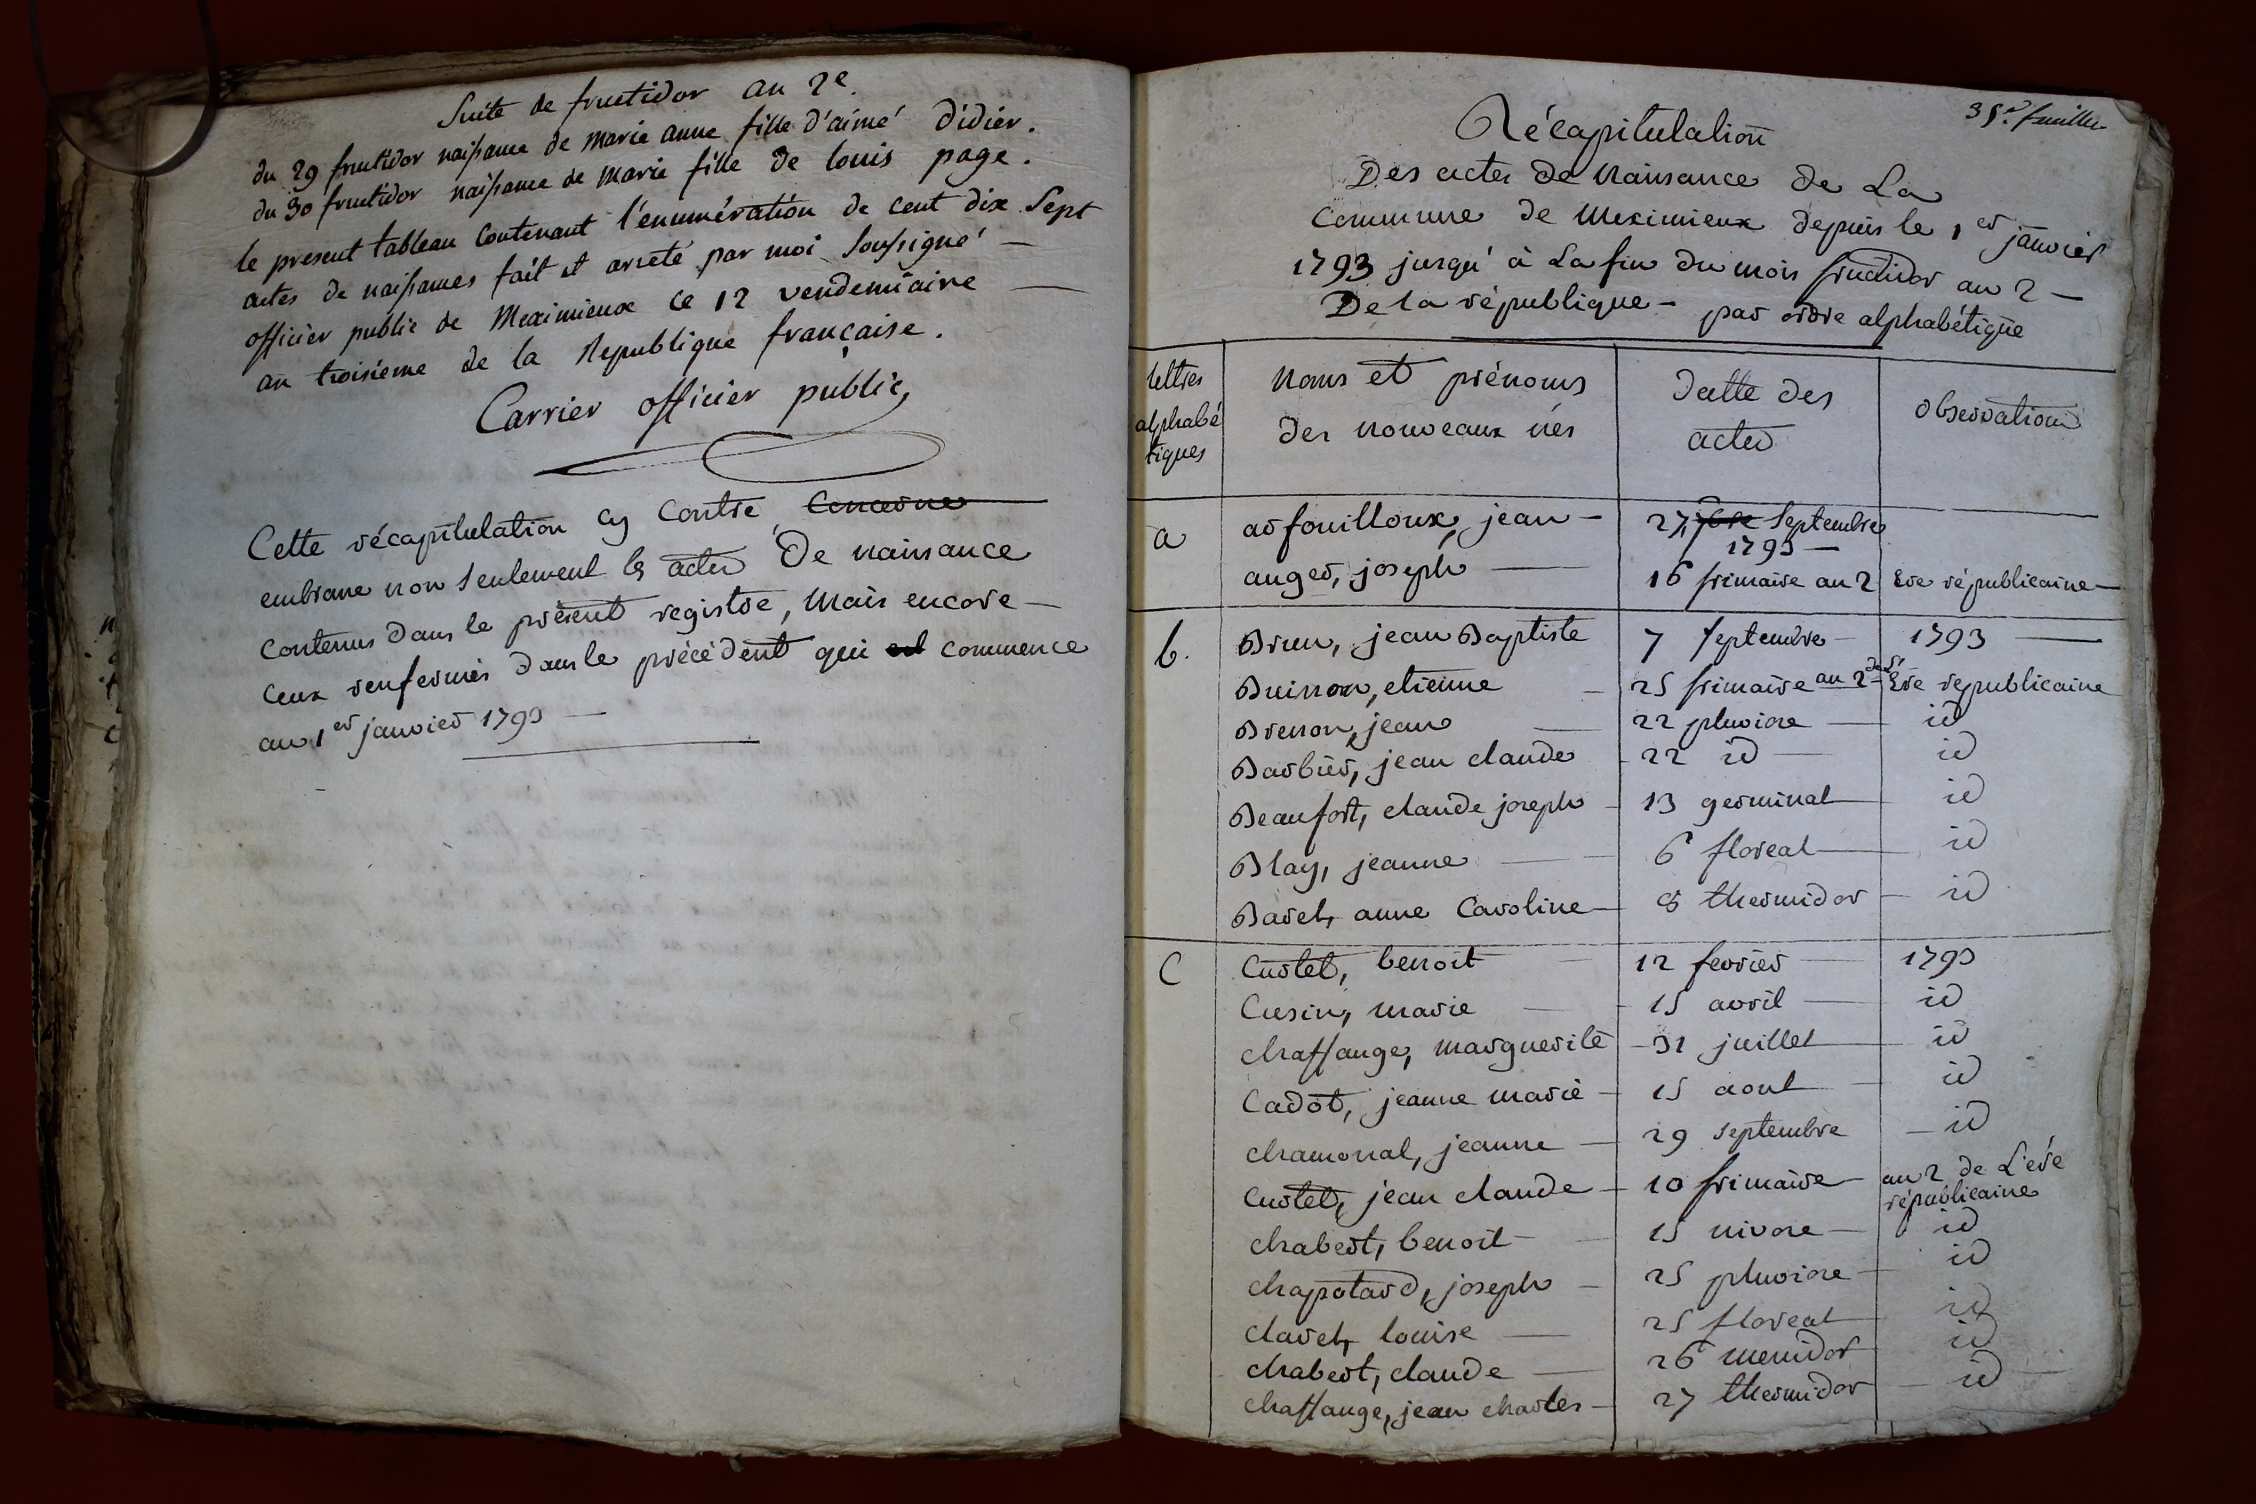 Suite de fructidor an 2e.
du 29 fructidor naissance de marie anne fille d'aimé didier.
du 30 fructidor naissance de marie fille de louis page.
le present tableau contenant l'enumération de cent dix Sept
actes de naissances fait et arreté par moi soussigné —
officier public de Meximieux ce 12 vendemiaire —
an troisième de la Republique française.
Carrier officier public,
Cette récapitulation cy contre, concerne
embrasse non seulement les actes De naissance
contenus dans le présent registre, mais encore —
ceux renfermés dans le précédent qui est commence
au 1er janvier 1793 —
35e. feuillet
Récapitulation
Des actes de naissance de La
commune de Meximieux depuis le 1er janvier
1793 jusqu'à La fin du mois fructidor an 2 —
De la république — par ordre alphabétique
lettres alphabétiques
noms et prénoms des nouveaux nés
datte des actes
observations
a
arfouilloux, jean — 27, 7bre septembre 1793 —
auger, joseph — 16 frimaire an 2 Ere républicaine —
b.
Brun, jean Baptiste 7 septembre — 1793 —
Buisson, etienne — 25 frimaire an 2 de L' Ere republicaine
Bresson, jean — 22 pluviose — id
Barbier, jean claude 22 id — id
Beaufort, claude joseph — 13 germinal — id
Blay, jeanne — 6 floreal — id
Barel, anne Caroline — 8 thermidor — id
C
Curtet, benoit — 12 fevrier — 1793
Cusin, marie — 15 avril — id
chaffange, marguerite — 31 juillet — id
Cadot, jeanne marie — 15 aout — id
chamonal, jeanne — 29 septembre — id
Curtet, jean claude — 10 frimaire — an 2 de L'ére républicaine
chabert, benoit — 15 nivose — id
chapotard, joseph — 25 pluviose — id
clavel, louise — 25 floreal — id
chabert, claude — 26 messidor id
chaffange, jean charles — 27 thermidor — id —